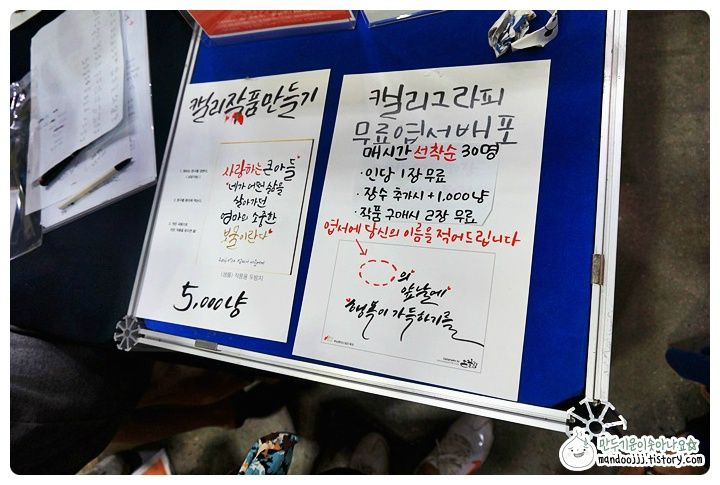 캘리작품만들기
사랑하는 큰아들
"네가 어떤 삶을
살아가던
엄마의 소중한
보물이란다"
5,000냥
캘리그라피
무료엽서배포
매시간 선착순 30명
· 인당 1장 무료
· 장수 추가시 +1,000냥
· 작품 구매시 2장 무료
엽서에 당신의 이름을 적어드립니다
의
앞날에
행복이 가득하기를
만두기운이솟아나요
mandoojjj.tistory.com